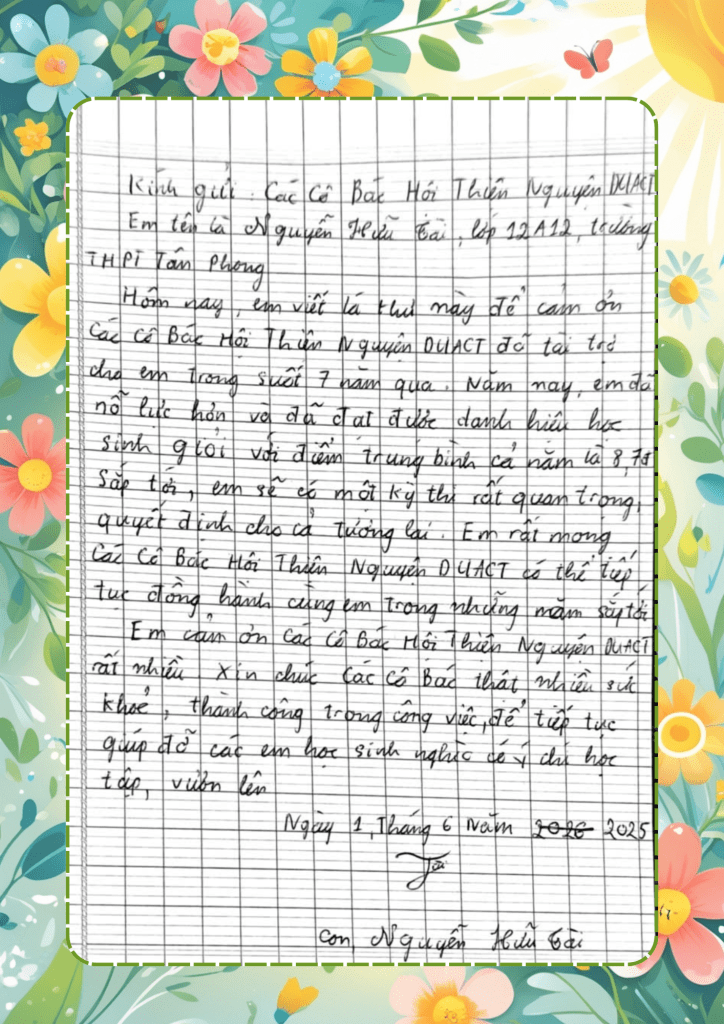 Kính gửi : Các Cô Bác Hội Thiện Nguyện DUACT
Em tên là Nguyễn Hữu Tài, lớp 12A12, trường
THPT Tân Phong
Hôm nay, em viết lá thư này để cảm ơn
Các Cô Bác Hội Thiện Nguyện DUACT đã tài trợ
cho em trong suốt 7 năm qua. Năm nay, em đã
nỗ lực hơn và đã đạt được danh hiệu học
sinh giỏi với điểm trung bình cả năm là 8,7đ
Sắp tới, em sẽ có một kỳ thi rất quan trọng,
quyết định cho cả tương lai. Em rất mong
Các Cô Bác Hội Thiện Nguyện DUACT có thể tiếp
tục đồng hành cùng em trong những năm sắp tới
Em cảm ơn Các Cô Bác Hội Thiện Nguyện DUACT
rất nhiều. Xin chúc Các Cô Bác thật nhiều sức
khoẻ, thành công trong công việc, để tiếp tục
giúp đỡ các em học sinh nghèo có ý chí học
tập, vươn lên
Ngày 1, Tháng 6 Năm 2026 2025
Tài
Con, Nguyễn Hữu Tài